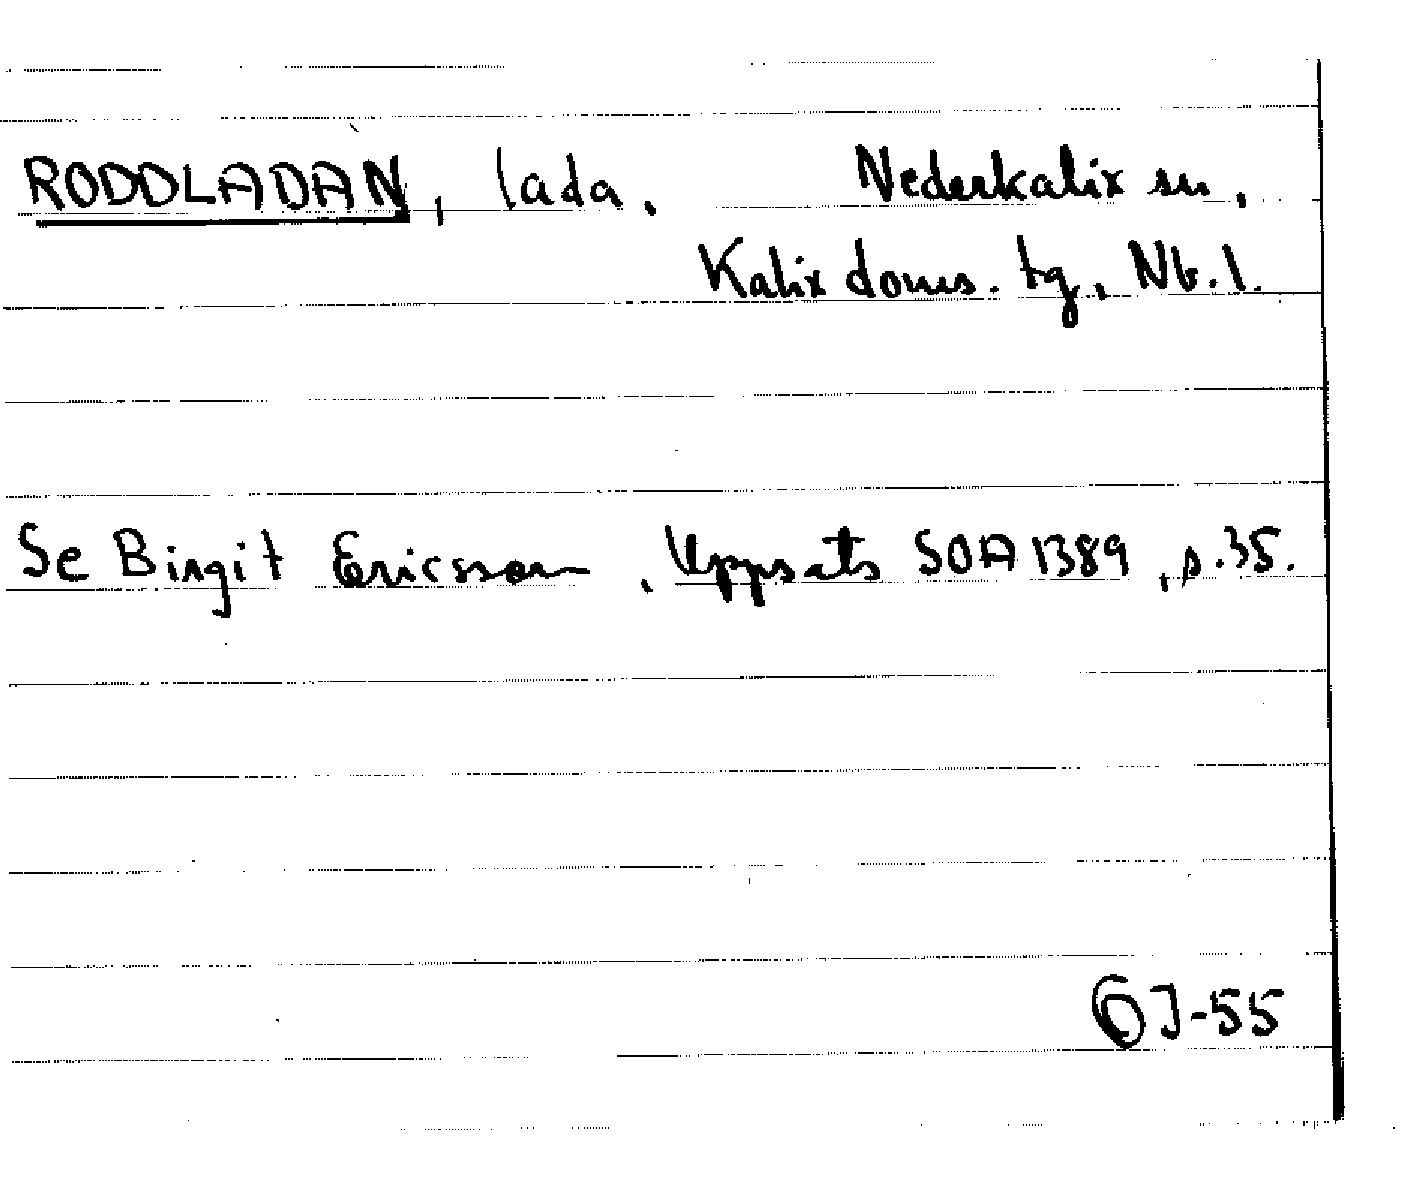 RODDLADAN, lada. Nederkalix sn.
Kalix doms. tg, Nb. l.
Se Birgit Ericsson, Uppsats SOA 1389, s. 35.
ÖJ-55